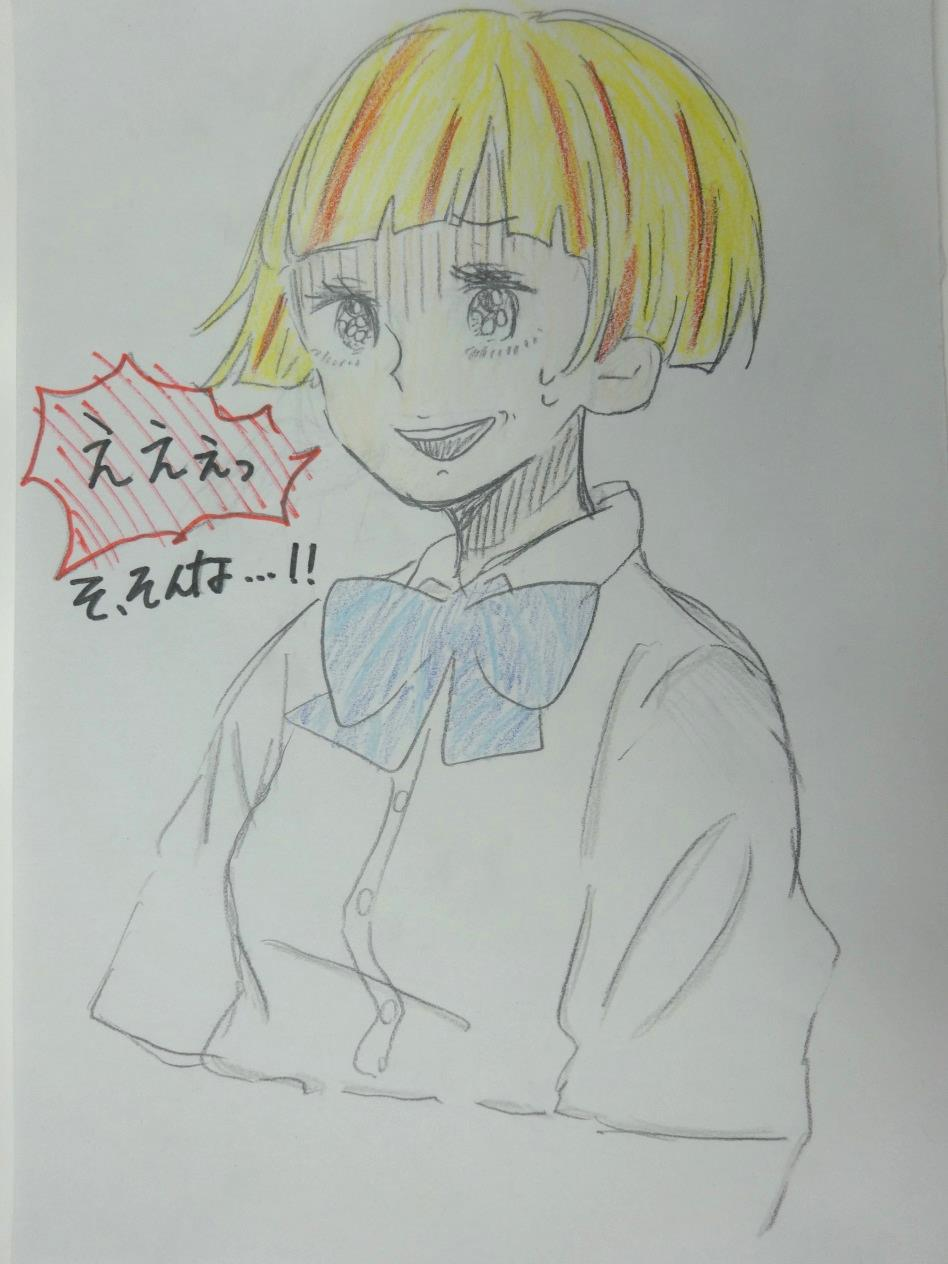 えええっ
そ、そんな…!!